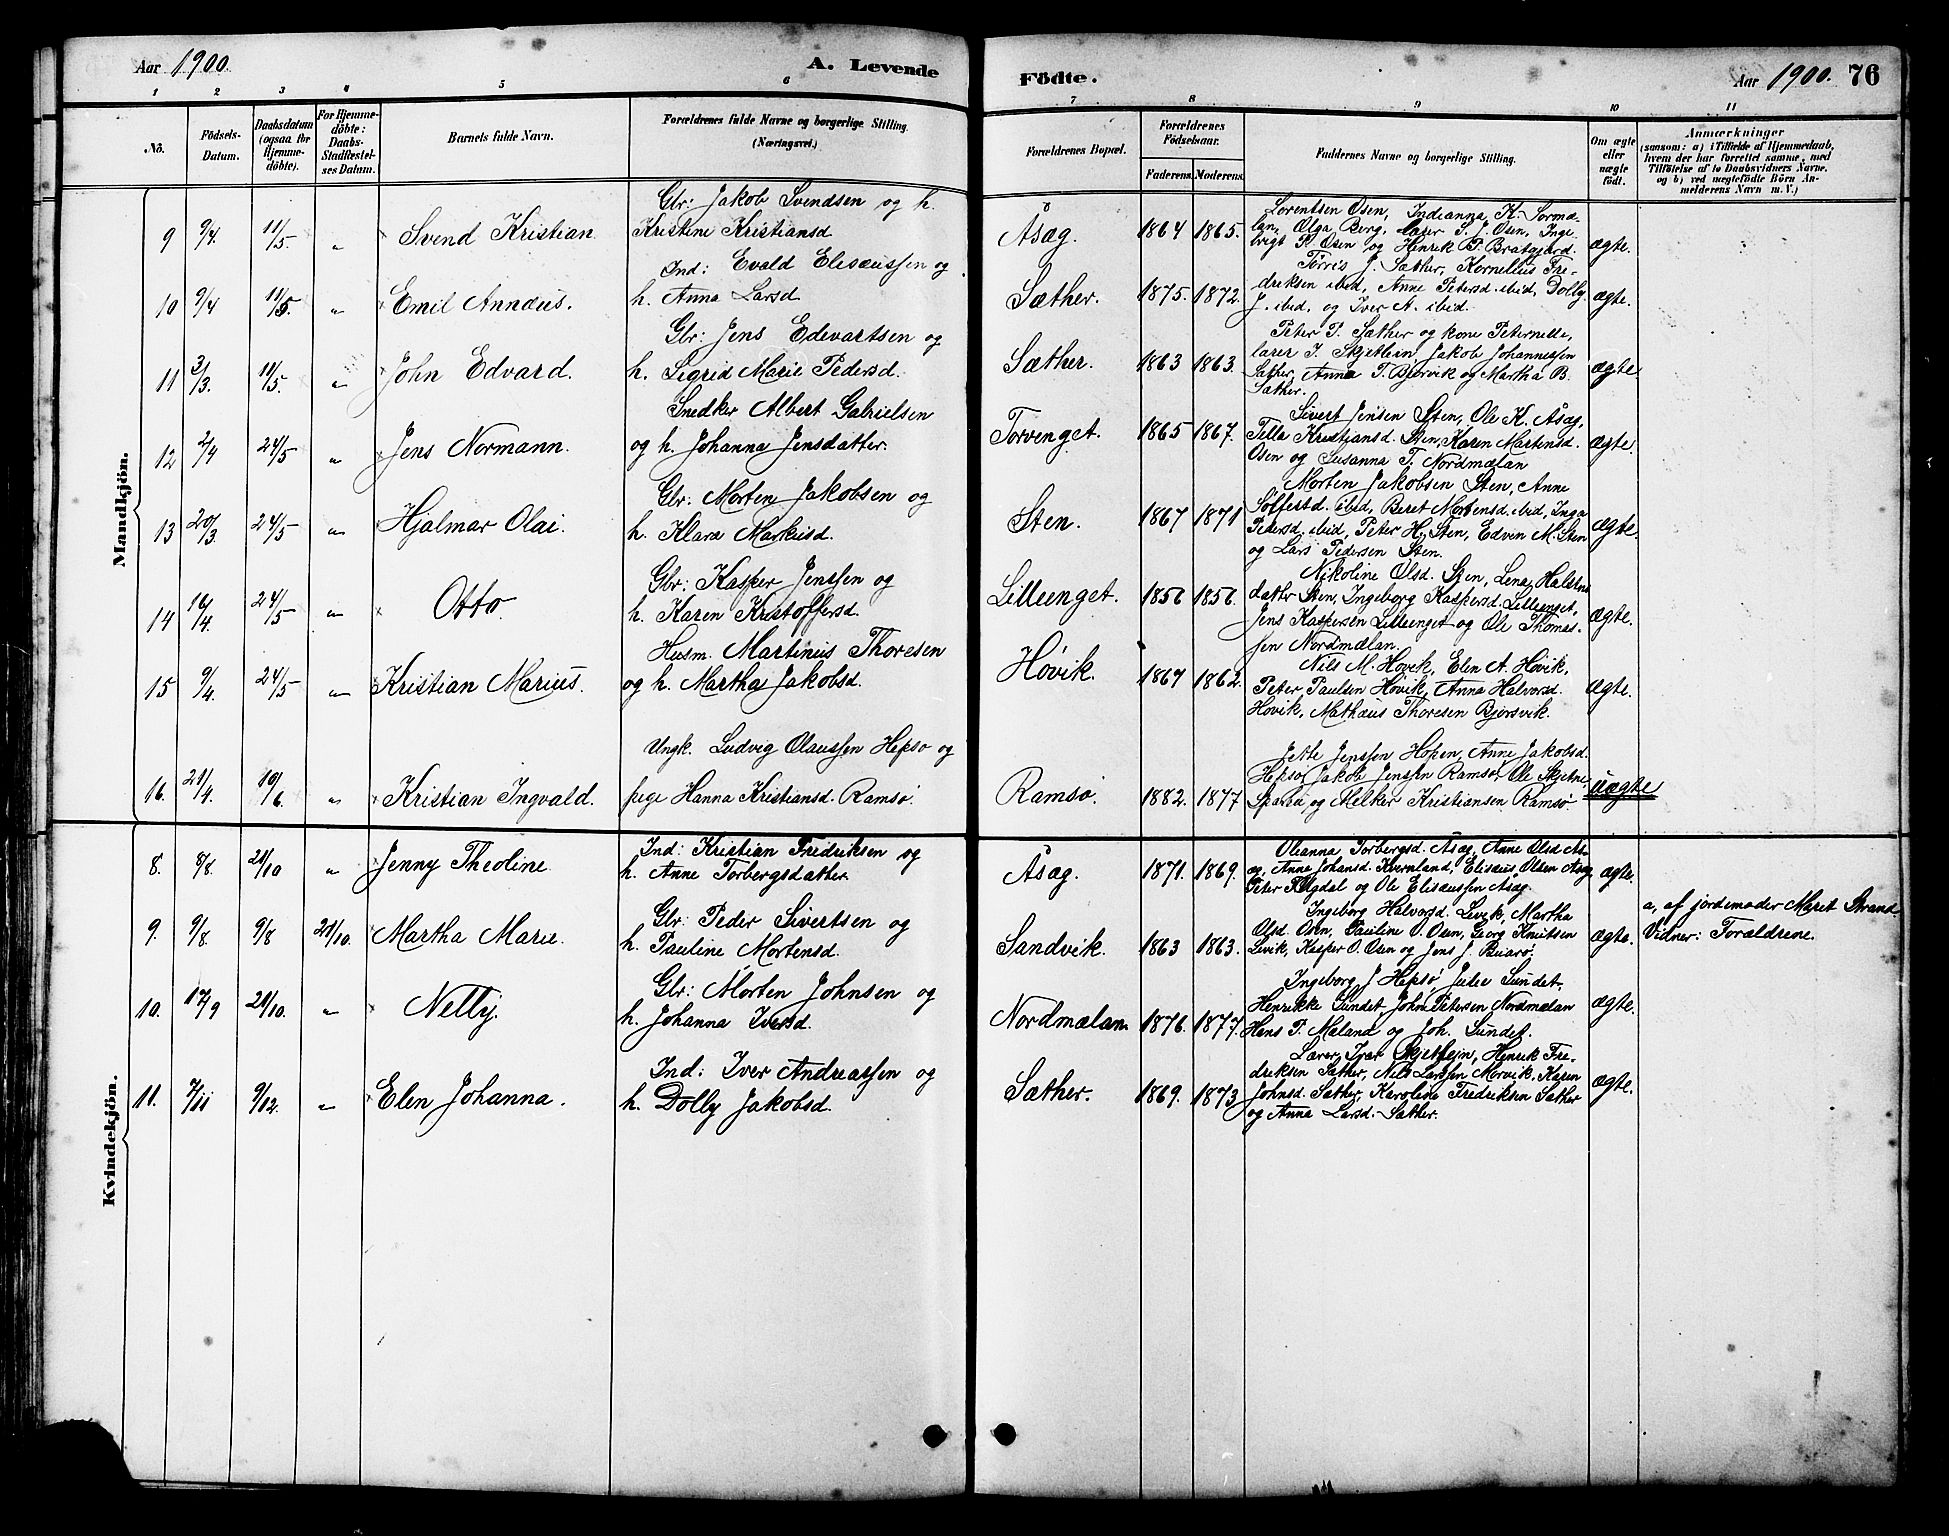 Aar 1900. A. Levende
1 2 3 4 5 6
No. Födsels-Datum. Daabsdatum (ogsaa for Hjemmedöbte). For Hjemmedöbte: Daabs-Stadfæstelses Datum. Barnets fulde Navn. Forældrenes fulde Navne og borgerlige Stilling. (Næringsvei.)
Mandkjön.
Glbr: Jakob Svendsen og h.
9 9/4. 11/5. " Svend Kristian. Kristine Kristiansd
Ind: Evald Elisæussen og
10 9/4 11/5. " Emil Annæus. h. Anna Larsd
Gbr: Jens Edevartsen og
11 3/3. 11/5. " John Edvard. h. Sigrid Marie Pedersd.
Snedker Albert Gabrielsen
12 2/4 24/5 " Jens Normann. og h. Johanna Jensdatter.
Gbr: Morten Jakobsen og
13 20/3 24/5 " Hjalmar Olai. h. Klara Markusd.
Gbr: Kasper Jenssen og
14 16/4. 24/5 " Otto. h. Karen Kristoffersd.
Husm. Martinus Thoresen
15 9/4. 24/5 " Kristian Marius. og h. Martha Jakobsd.
Ungk. Ludvig Olaussen Hepsø og
16. 21/4. 10/6. " Kristian Ingvald. pige Hanna Kristiansd. Ramsø.
Kvindekjön.
Ind: Kristian Fredriksen og
8. 8/8. 21/10 " Jenny Theoline. h. Anne Torbergsdatter.
Gbr: Peder Sivertsen og
9. 9/8. 9/8 21/10. Martha Marie. h. Pauline Mortensd.
Gbr: Morten Johnsen og
10. 17/9 21/10. " Nelly. h. Johanna Iversd.
Ind: Iver Andreassen og
11. 7/11 9/12. " Elen Johanna. h. Dolly Jakobsd.
Födte. Aar 1900. 76
7 8 9 10 11
Forældrenes Bopæl. Forældrenes Födselsaar. Faderens. Moderens. Faddernes Navne og borgerlige Stilling. Om ægte eller uægte födt. Anmærkninger
(saasom: a) i Tilfælde af Hjemmedaab,
hvem der har forrettet samme, med
Tilföielse af to Daabsvidners Navne,
og b) ved uægtefödte Börn An-
melderens Navn m. V.)
Lorentsen Osen, Indianna K. Normæ-
Åsag. 1864 1865. lan, Olga Berg, lærer S. J. Osen, Inge-
brigt P. Osen og Henrik P. Bratgjærd. ægte.
Tørris J. Sæther, Kornelius Fre-
Sæther. 1875. 1872. driksen ibid, Anne Petersd. ibid, Dolly ægte.
J. ibid. og Iver A. ibid.
Peter P. Sæther og kone Peternelle,
Sæther. 1863 1863. lærer I. Skjetlein, Jakob Johannessen
Sæther, Anna T. Bjørvik og Martha B. ægte.
Sæther.
Sivert Jensen Sten, Ole K. Åsag,
Torvenget. 1865 1867. Tella Kristiansd. Sten, Karen Martinsd. ægte.
Osen og Susanna T. Nordmælan
Morten Jakobsen Sten, Anne
Sten. 1867 1871 Toffersd. ibid, Beret Mortensd. ibid, Inga
Petersd. ibid, Peter H. Sten, Edvin M. Sten ægte.
og Lars Pedersen Sten.
Nikoline Olsd. Sten, Lena Halstens
Lilleenget. 1856 1856. datter Sten, Ingeborg Kaspersd. Lilleenget,
Jens Kaspersen Lilleenget og Ole Thomas- ægte.
sen Nordmælan.
Høvik. 1867 1862. Nils M. Høvik, Elen A. Høvik,
Peter Paulsen Høvik, Anna Halvorsd. ægte.
Høvik, Mathæus Thoresen Bjørsvik.
Jette Jenssen Hopen, Anne Jakobsd.
Hepsø, Jakob Jenssen Ramsø, Ole Skjetne
Ramsø. 1882. 1877 og Melker Kristiansen Ramsø uægte
Oleanna Torbergsd. Asag, Anne Olsd As-
Åsag. 1871. 1869. ag, Anne Johansd. Kvernland, Elisæus Olsen Asag, ægte.
Peter Rugdal og Ole Elisæussen Asag.
Ingeborg Halvorsd. Levik, Martha a, af jordemoder Maret Strand
Sandvik. 1863 1863. Olsd. Osen, Pauline O. Osen, Georg Knutsen ægte. Vidner: Forældrene.
Levik, Kasper O. Osen og Jens J. Buarø.
Ingeborg J Hepsø, Julie Sundet,
Nordmælan. 1876. 1877. Henrikke Sundet, John Petersen Nordmælan ægte.
Hans P. Mæland og Joh. Sundet.
Lærer Ivar Skjetlein, Henrik Fre-
Sæther. 1869. 1873 driksen Sæther, Nils Larssen Morvik, Karen ægte.
Johnsd. Sæther, Karoline Fredriksen Sæther
og Anna Larsd. Sæther.